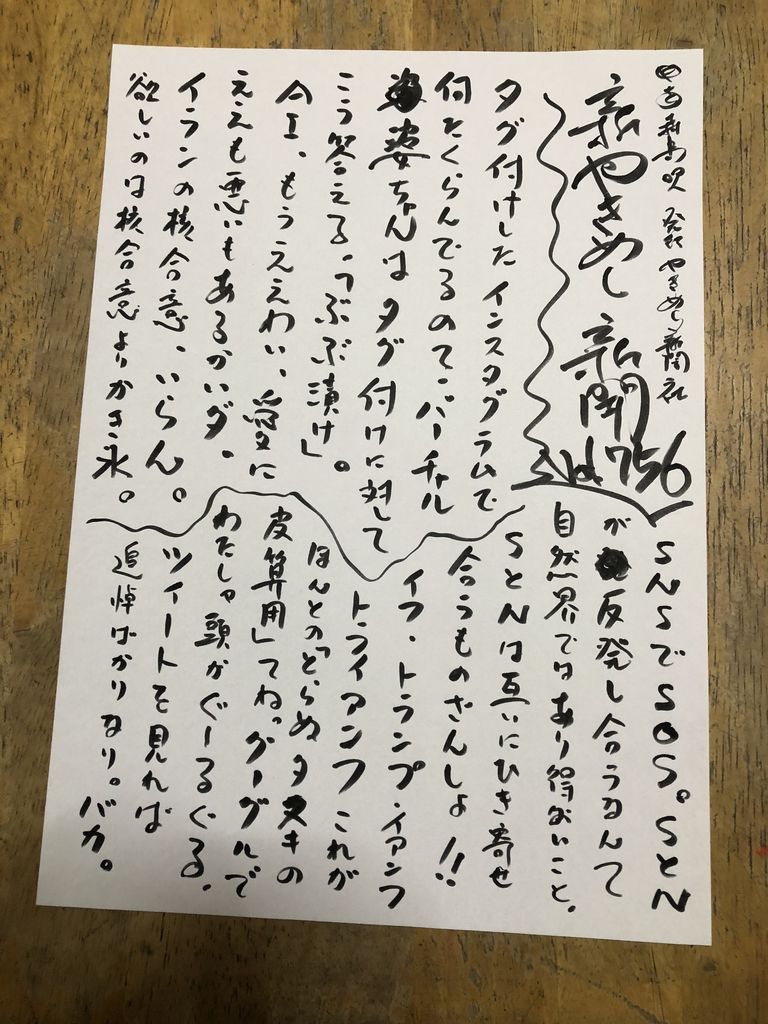 発行 やきめし新聞社
新やきめし新聞
No.756
SNSでSOS。SとN
が反発し合うなんて
自然界ではあり得ないこと。
SとNは互いにひき寄せ
合うものざんしょ!!
イフ・トランプ・イアンフ
トライアンフ これが
ほんとの「とらぬタヌキの
皮算用」てね。グーグルで
わたしゃ頭がぐーるぐる。
ツイートを見れば
追悼ばかりなり。バカ。
タグ付けしたインスタグラムで
何たくらんでるので・バーチャル
婆ちゃんはタグ付けに対して
こう答える。「ぶぶ漬け」
AI、もうええわい、愛に
ええも悪いもあるかいダ。
イランの核合意、いらん。
欲しいのは核合意よりかき氷。